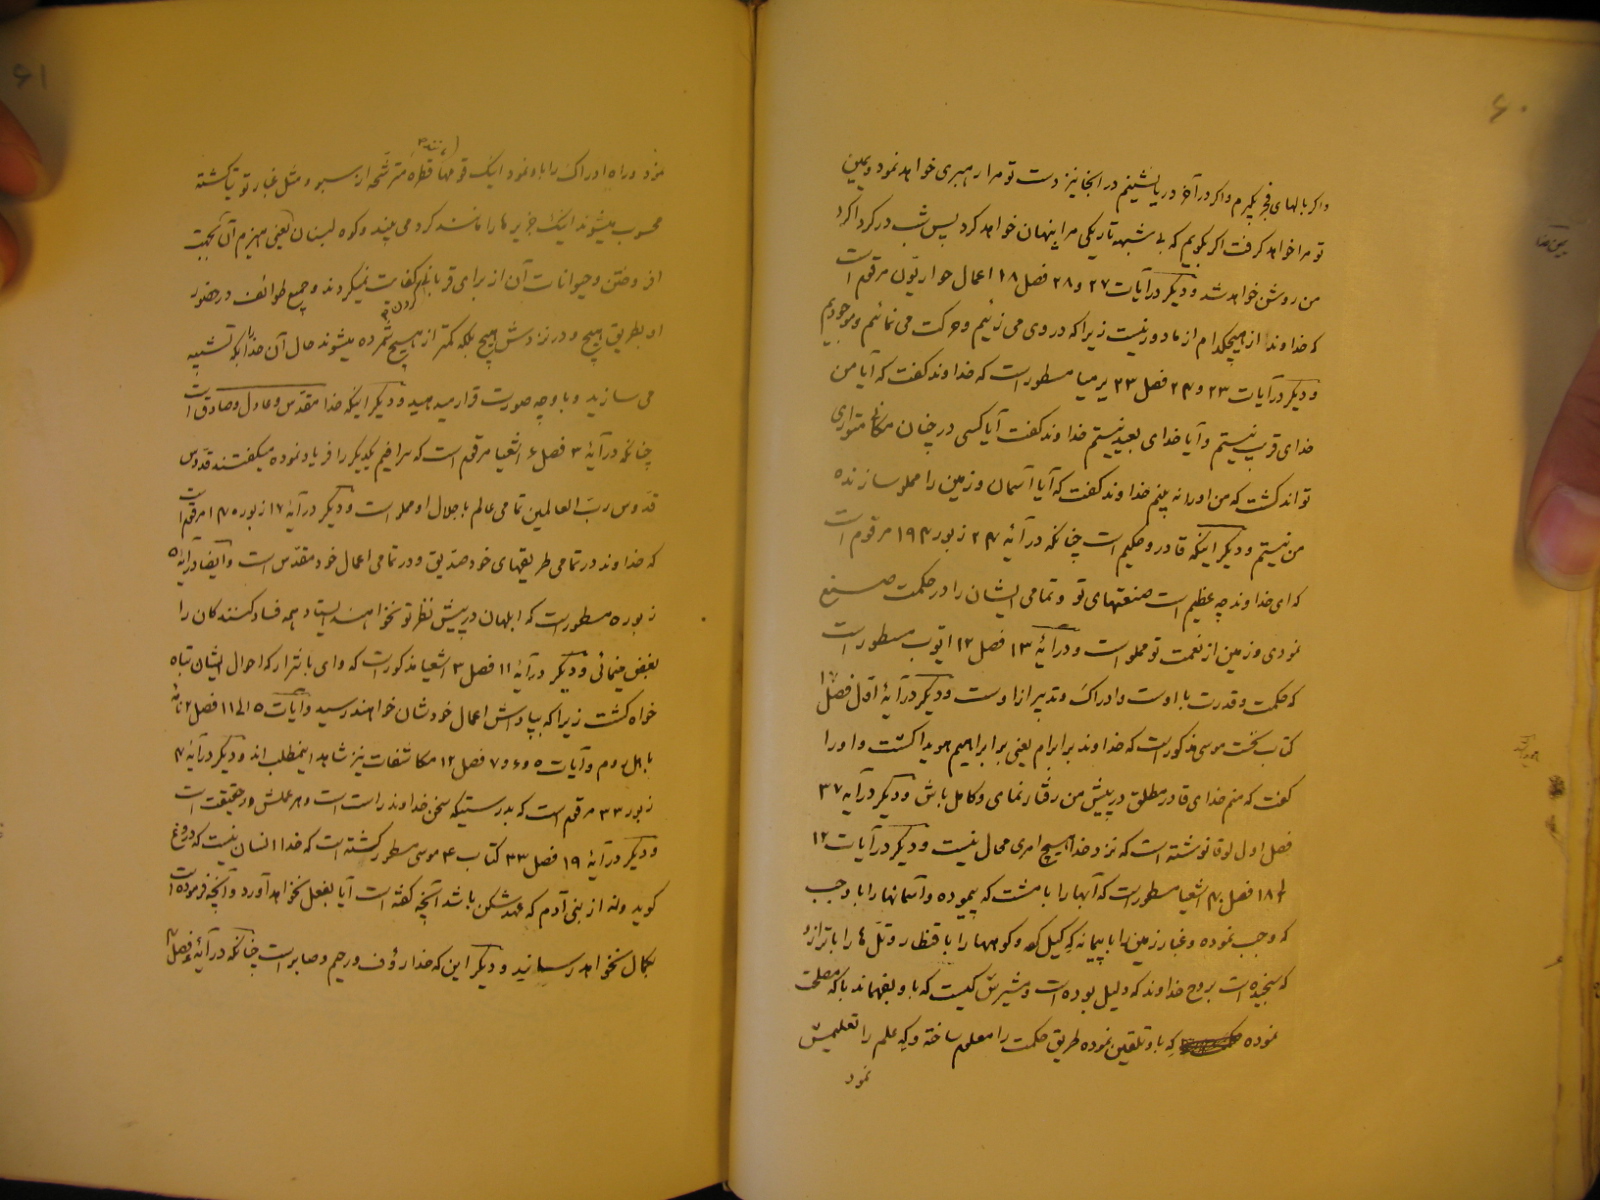 ۶۰
واگر بالهای فجر بگیرم واگر در آخر دریا بنشینم در انجا نیز دست تو مرا رهبری خواهد نمود ویمین
تو مرا خواهد گرفت اگر بگویم که بی شبهه تاریکی مرا پنهان خواهد کرد پس شب در گرداگرد
من روشن خواهد شد ودیگر در آیات ۲۷ و ۲۸ فصل ۱۸ اعمال حواریون مرقوم است
که خداوند از هیچکدام از ما دور نیست زیرا که در وی می زئیم وحرکت می نمائیم وموجودیم
ودیگر در آیات ۲۳ و ۲۴ فصل ۲۳ یرمیا مسطور است که خداوند گفت که آیا من
خدای قریب نیستم وآیا خدای بعید نیستم خداوند گفت آیا کسی در چنان مکانی متواری
تواند گشت که من اورا نه بینم خداوند گفت که آیا آسمان وزمین را مملو سازنده
من نیستم ودیگر اینکه قادر وحکیم است چنانکه در آیهٔ ۲۴ زبور ۱۹۴ مرقوم است
که ای خداوند چه عظیم است صنعتهای تو وتمامی ایشان را در حکمت صنیع
نمودی وزمین از نعمت تو مملو است ودر آیهٔ ۱۳ فصل ۱۲ ایوب مسطور است
که حکمت وقدرت با اوست وادراک وتدبیر از اوست ودیگر در آیهٔ اول فصل ۱۷
کتاب نخست موسی مذکور است که خداوند بر ابرام یعنی بر ابراهیم هویدا گشت واورا
گفت که منم خدای قادر مطلق در پیش من رفتار نمای وکامل باش ودیگر در آیه ۳۷
فصل اول لوقا نوشته است که نزد خدا هیچ امری محال نیست ودیگر در آیات ۱۲
تا ۱۸ فصل ۴۰ اشعیا مسطور است که آبها را با مشت که پیموده وآسمانها را با وجب
که وجب نموده وغبار زمین را با پیمانه که کیل کرده وکوهها را با قنطار وتل ها را با ترازو
که سنجیده است بروح خداوند که دلیل بوده است ومشیرش کیست که باو بفهماند با که مصلحت
نموده که باو تلقین نموده طریق حکمت را معلوم ساخته وکه علم را تعلیمش
نمود
۶۱
نمود وراه ادراک را باو نمود اینک قومها مانند قطره مترشحه از سبو ومثل غبار ترازو گشته
محسوب میشوند اینک جزیره ها را مانند گرد می بیند وکوه لبنان یعنی هیزم آن بجهت
افروختن وحیوانات آن از برای قربانی کردن کفایت نمیکردند وجمیع طوائف در حضور
او بطریق هیچ ودر نزدش هیچ بلکه کمتر از هیچ شمرده میشوند حال آن خدا را بکه تشبیه
می سازید وبا وچه صورت قرار میدهید ودیگر اینکه خدا مقدس وعادل وصادق است
چنانکه در آیهٔ ۳ فصل ۶ اشعیا مرقوم است که سرافیم یکدیگر را فریاد نموده میگفتند قدوس
قدوس رب العالمین تمامی عالم با جلال او مملو است ودیگر در آیهٔ ۱۷ زبور ۱۴۵ مرقوم است
که خداوند در تمامی طریقهای خود صدیق ودر تمامی اعمال خود مقدس است وایضا در آیهٔ ۵
زبور ۵ مسطور است که ابلهان در پیش نظر تو نخواهند ایستاد همه فساد کنندگان را
بغض مینمائی ودیگر در آیهٔ ۱۱ فصل ۳ اشعیا مذکور است که وای با شرار که احوال ایشان تباه
خواه گشت زیرا که بپاداش اعمال خودشان خواهند رسید وآیات ۵ الی ۱۱ فصل ۲ نامهٔ
باهل روم وآیات ۵ و ۶ و ۷ فصل ۱۲ مکاشفات نیز شاهد اینمطلب اند ودیگر در آیهٔ ۴
زبور ۳۳ مرقوم است که بدرستیکه سخن خداوند راست است وهر عملش در حقیقت است
ودیگر در آیهٔ ۱۹ فصل ۲۳ کتاب ۴ موسی مسطور گشته است که خدا انسان نیست که دروغ
گوید ونه از بنی آدم که عهد شکن باشد آنچه گفته است آیا بفعل نخواهد آورد وآنچه فرموده است
بکمال نخواهد رسانید ودیگر این که خدا رؤف ورحیم وصابر است چنانکه در آیهٔ فصل